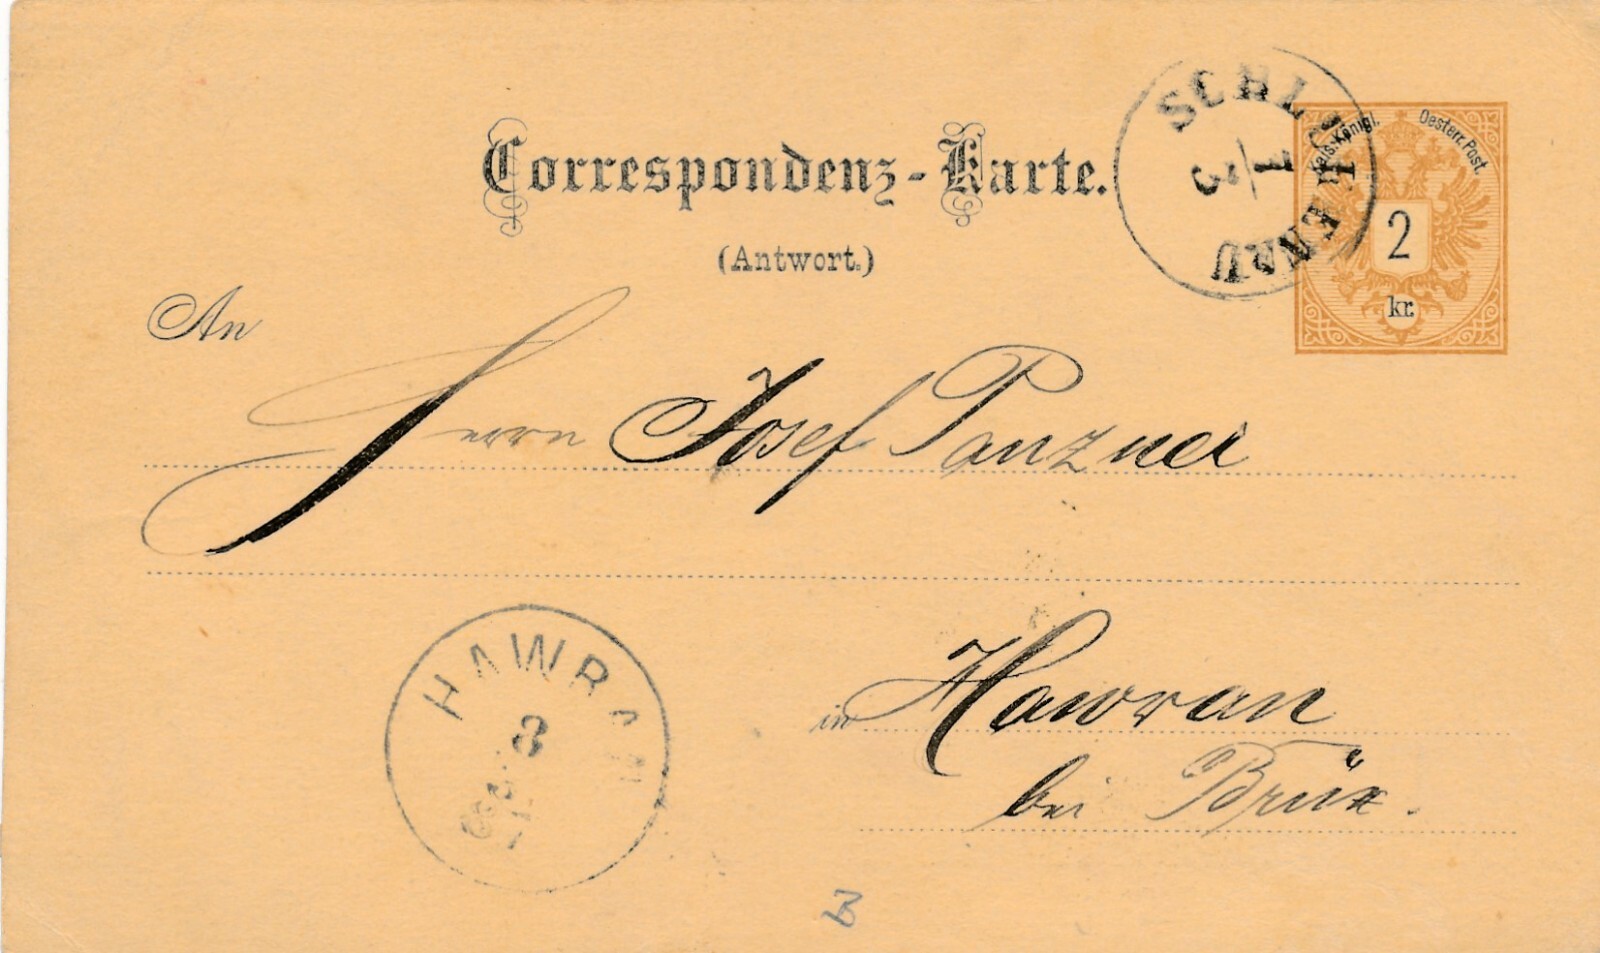 Correspondenz-Karte.
(Antwort.)
SCHLUCKENAU
3/1
Kais. Königl. Oesterr. Post.
2
kr.
An
Herrn Josef Panzner
in Hawran
bei Brüx.
HAWRAN
3
B